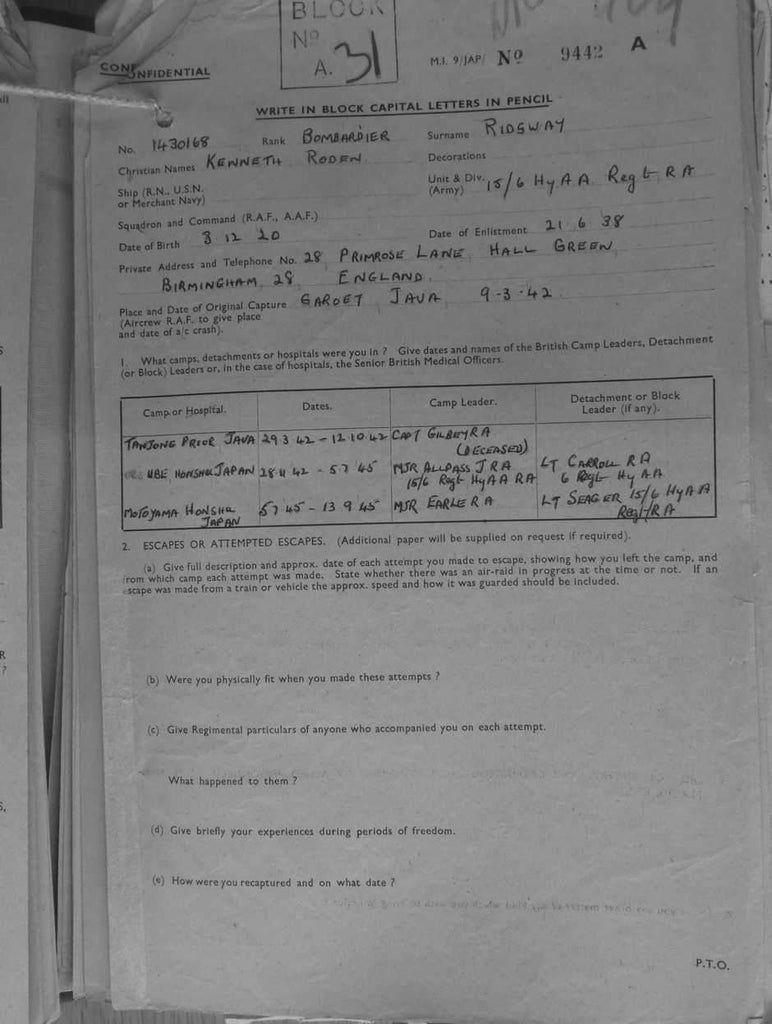 BLOCK
Nº
A. 31
CONFIDENTIAL
M.I. 9/JAP/ Nº 9442 A
WRITE IN BLOCK CAPITAL LETTERS IN PENCIL
No. 1430168 Rank BOMBARDIER Surname RIDGWAY
Christian Names KENNETH RODEN Decorations
Ship (R.N., U.S.N. or Merchant Navy) Unit & Div. (Army) 15/6 Hy A A Regt R A
Squadron and Command (R.A.F., A.A.F.)
Date of Birth 3 12 20 Date of Enlistment 21 6 38
Private Address and Telephone No. 28 PRIMROSE LANE HALL GREEN
BIRMINGHAM 28 ENGLAND.
Place and Date of Original Capture GAROET JAVA 9-3-42.
(Aircrew R.A.F. to give place
and date of a/c crash).
1. What camps, detachments or hospitals were you in ? Give dates and names of the British Camp Leaders, Detachment
(or Block) Leaders or, in the case of hospitals, the Senior British Medical Officers.
Camp or Hospital. Dates. Camp Leader. Detachment or Block Leader (if any).
TANJONG PRIOR JAVA 29 3 42 - 12 10 42 CAPT GILBEY R A (DECEASED)
UBE HONSHU JAPAN 28 11 42 - 5 7 45 MJR ALLPASS J R A 15/6 Regt Hy A A R A LT CARROLL R A 6 Regt Hy A A
MOTOYAMA HONSHU JAPAN 5 7 45 - 13 9 45 MJR EARLE R A LT SEAGER 15/6 Hy A A Regt R A
2. ESCAPES OR ATTEMPTED ESCAPES. (Additional paper will be supplied on request if required).
(a) Give full description and approx. date of each attempt you made to escape, showing how you left the camp, and
from which camp each attempt was made. State whether there was an air-raid in progress at the time or not. If an
escape was made from a train or vehicle the approx. speed and how it was guarded should be included.
(b) Were you physically fit when you made these attempts ?
(c) Give Regimental particulars of anyone who accompanied you on each attempt.
What happened to them ?
(d) Give briefly your experiences during periods of freedom.
(e) How were you recaptured and on what date ?
P.T.O.